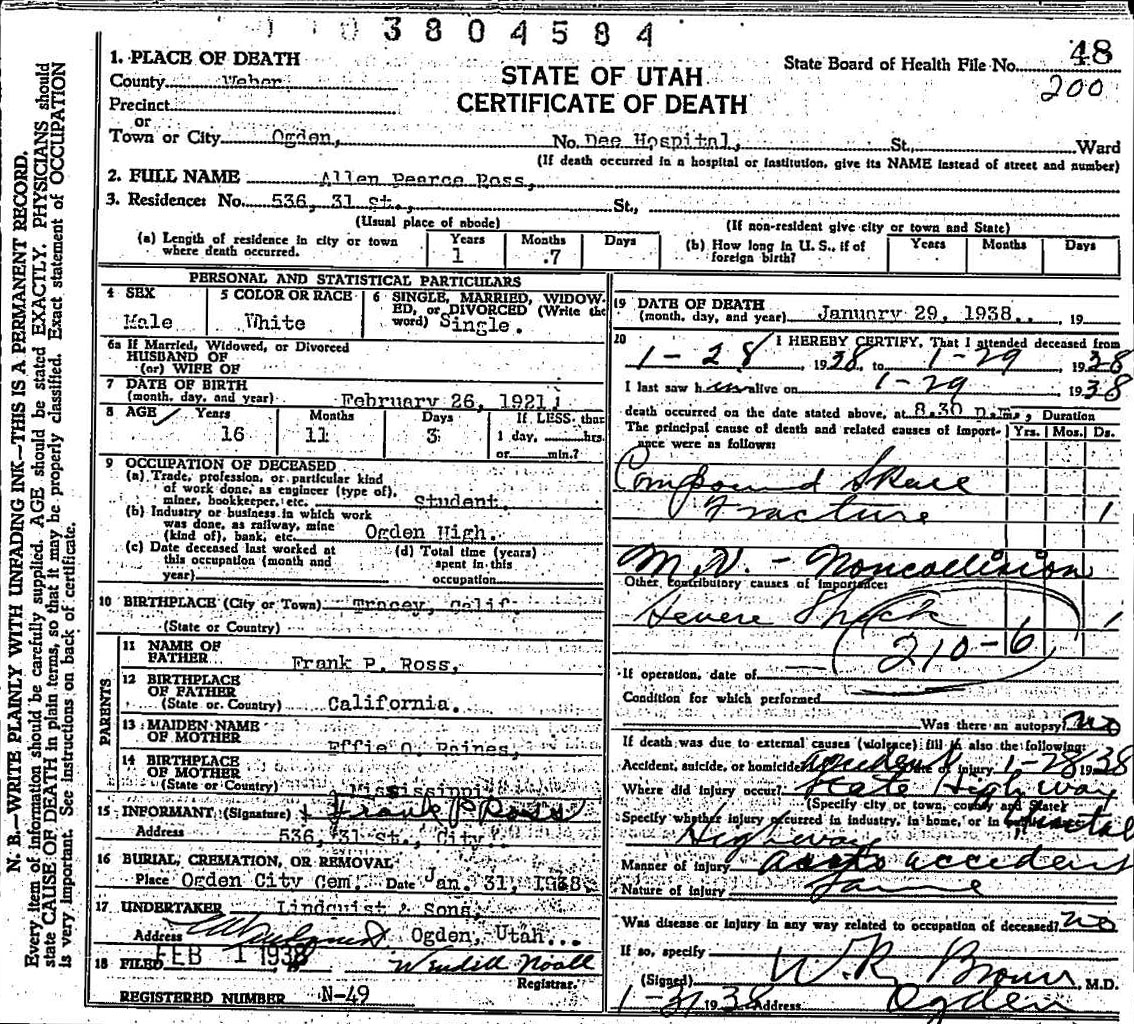 3 8 0 4 5 8 4
48
200
N. B.—WRITE PLAINLY WITH UNFADING INK—THIS IS A PERMANENT RECORD.
Every item of information should be carefully supplied. AGE should be stated EXACTLY. PHYSICIANS should
state CAUSE OF DEATH in plain terms, so that it may be properly classified. Exact statement of OCCUPATION
is very important. See instructions on back of certificate.
STATE OF UTAH
CERTIFICATE OF DEATH
State Board of Health File No.
1. PLACE OF DEATH
County Weber
Precinct
or
Town or City Ogden, No. Dee Hospital, St., Ward
(If death occurred in a hospital or institution, give its NAME instead of street and number)
2. FULL NAME Allen Pearce Ross,
3. Residence: No. 536, 31 st., St.,
(Usual place of abode) (If non-resident give city or town and State)
(a) Length of residence in city or town where death occurred. Years 1 Months .7 Days
(b) How long in U. S., if of foreign birth? Years Months Days
PERSONAL AND STATISTICAL PARTICULARS
4 SEX Male
5 COLOR OR RACE White
6 SINGLE, MARRIED, WIDOWED, or DIVORCED (Write the word) Single.
6a If Married, Widowed, or Divorced
HUSBAND OF
(or) WIFE OF
7 DATE OF BIRTH
(month, day, and year) February 26, 1921
8 AGE Years 16 Months 11 Days 3 If LESS than 1 day, hrs. or min.?
9 OCCUPATION OF DECEASED
(a) Trade, profession, or particular kind
of work done, as engineer (type of),
miner, bookkeeper, etc. Student.
(b) Industry or business in which work
was done, as railway, mine
(kind of), bank, etc. Ogden High.
(c) Date deceased last worked at
this occupation (month and
year)
(d) Total time (years)
spent in this
occupation
10 BIRTHPLACE (City or Town) Tracey, Calif.
(State or Country)
PARENTS
11 NAME OF
FATHER Frank P. Ross,
12 BIRTHPLACE
OF FATHER
(State or Country) California.
13 MAIDEN NAME
OF MOTHER Effie O.
14 BIRTHPLACE
OF MOTHER
(State or Country) Mississippi
15 INFORMANT (Signature) Frank P Ross
Address 536, 31 st., City.
16 BURIAL, CREMATION, OR REMOVAL
Place Ogden City Cem. Date Jan. 31, 1938.
17 UNDERTAKER Lindquist & Sons,
Address Ogden, Utah...
18 FILED FEB 1 1938 Wendell Noall
Registrar.
REGISTERED NUMBER N-49
19 DATE OF DEATH
(month, day, and year) January 29, 1938. , 19
20 I HEREBY CERTIFY, That I attended deceased from
1-28, 1938, to 1-29 1938
I last saw him alive on 1-29 1938
death occurred on the date stated above, at 8.30 p.m., Duration
The principal cause of death and related causes of importance were as follows: Yrs. Mos. Ds.
Compound Skull
Fracture 1
M.V. - Noncollision
Other contributory causes of importance:
Severe Shock 1
210-6
If operation, date of
Condition for which performed
Was there an autopsy? no
If death was due to external causes (violence) fill in also the following:
Accident, suicide, or homicide accident Date of injury 1-28 1938
Where did injury occur? State Highway
(Specify city or town, county and State)
Specify whether injury occurred in industry, in home, or in
Highway
Manner of injury auto accident
Nature of injury Same
Was disease or injury in any way related to occupation of deceased? no
If so, specify
(Signed) W. R. Brown, M.D.
1-31 1938 Address Ogden